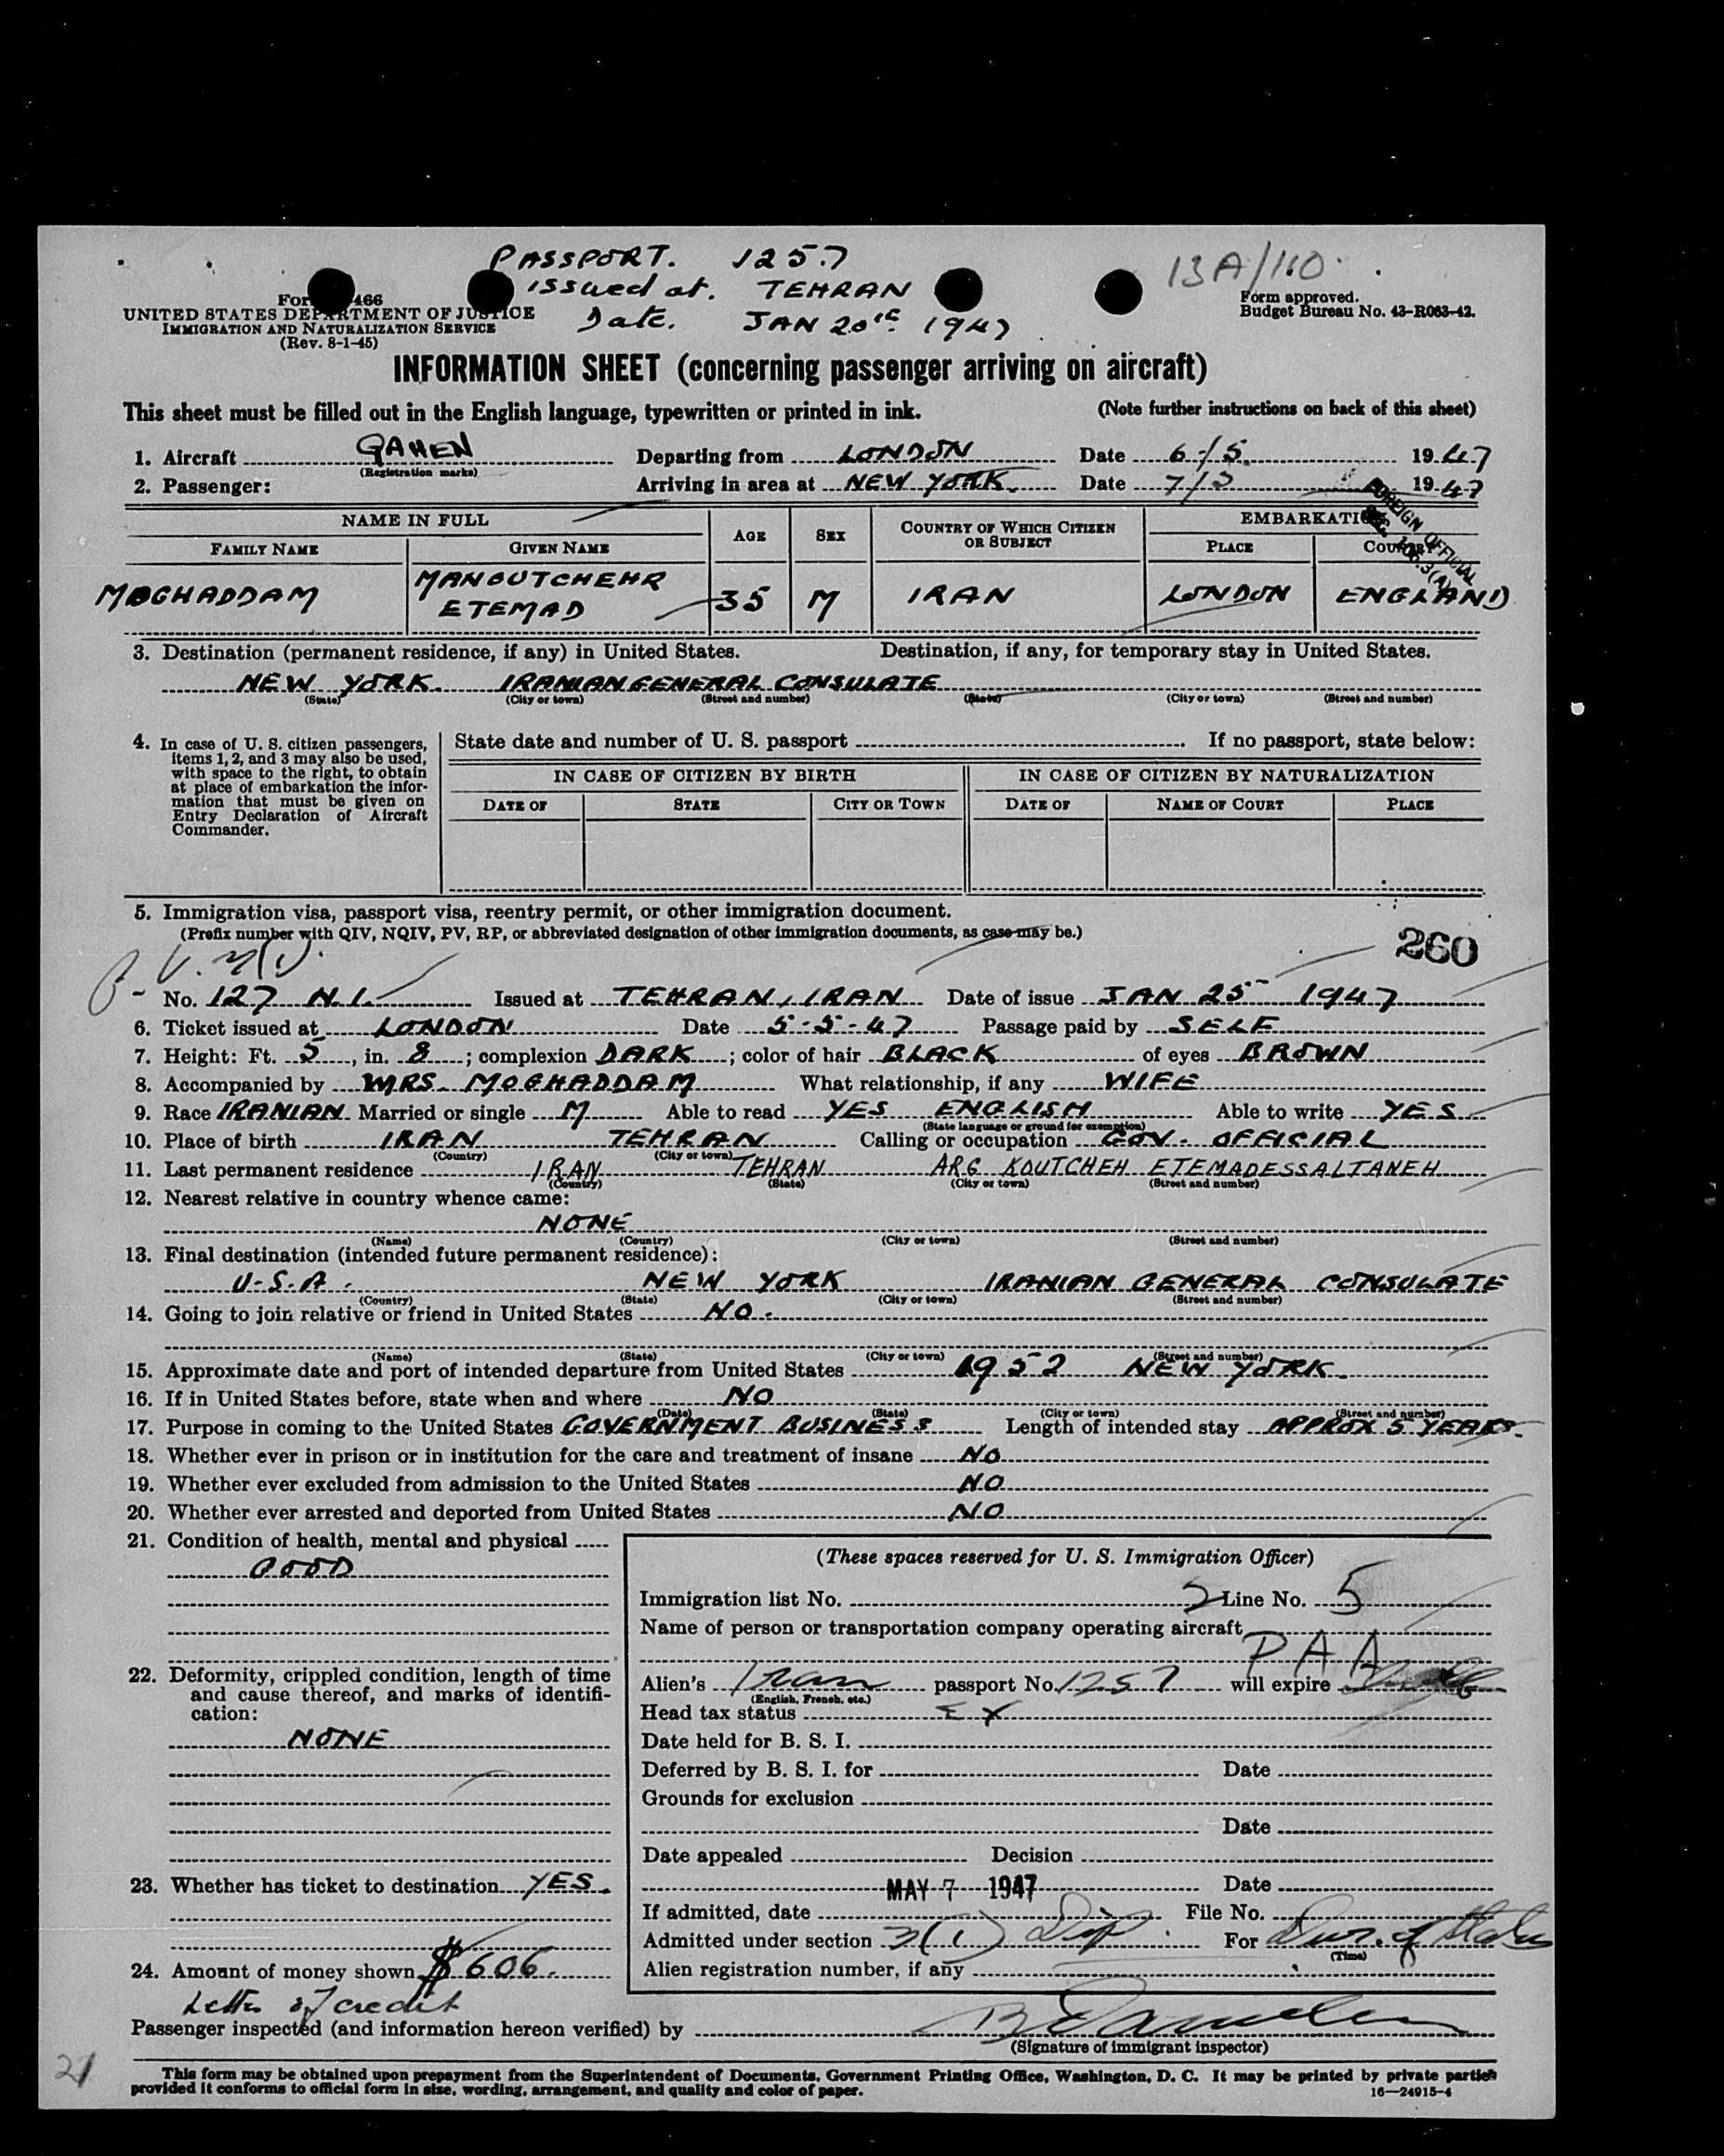 PASSPORT. 1257
13A/110
issued at. TEHRAN
Date. JAN 20 1947
466
UNITED STATES DEPARTMENT OF JUSTICE
IMMIGRATION AND NATURALIZATION SERVICE
(Rev. 8-1-45)
Form approved.
Budget Bureau No. 43-R063-42.
INFORMATION SHEET (concerning passenger arriving on aircraft)
This sheet must be filled out in the English language, typewritten or printed in ink. (Note further instructions on back of this sheet)
1. Aircraft GAHEN Departing from LONDON Date 6/5 1947
(Registration marks)
2. Passenger: Arriving in area at NEW YORK. Date 7/5 1947
FOREIGN OFFICIAL
NAME IN FULL AGE SEX COUNTRY OF WHICH CITIZEN OR SUBJECT EMBARKATION
FAMILY NAME GIVEN NAME PLACE COUNTRY
MOGHADDAM MANOUTCHEHR ETEMAD 35 M IRAN LONDON ENGLAND
3. Destination (permanent residence, if any) in United States. Destination, if any, for temporary stay in United States.
NEW YORK. IRANIAN GENERAL CONSULATE
(State) (City or town) (Street and number) (State) (City or town) (Street and number)
4. In case of U. S. citizen passengers, items 1, 2, and 3 may also be used, with space to the right, to obtain at place of embarkation the information that must be given on Entry Declaration of Aircraft Commander.
State date and number of U. S. passport If no passport, state below:
IN CASE OF CITIZEN BY BIRTH IN CASE OF CITIZEN BY NATURALIZATION
DATE OF STATE CITY OR TOWN DATE OF NAME OF COURT PLACE
5. Immigration visa, passport visa, reentry permit, or other immigration document.
(Prefix number with QIV, NQIV, PV, RP, or abbreviated designation of other immigration documents, as case may be.)
260
No. 127 N.I. Issued at TEHRAN, IRAN Date of issue JAN 25 1947
6. Ticket issued at LONDON Date 5-5-47 Passage paid by SELF
7. Height: Ft. 5, in. 8; complexion DARK; color of hair BLACK of eyes BROWN
8. Accompanied by MRS. MOGHADDAM What relationship, if any WIFE
9. Race IRANIAN Married or single M Able to read YES ENGLISH Able to write YES
(State language or ground for exemption)
10. Place of birth IRAN TEHRAN Calling or occupation GOV. OFFICIAL
(Country) (City or town)
11. Last permanent residence IRAN TEHRAN ARG KOUTCHEH ETEMADESSALTANEH
(Country) (State) (City or town) (Street and number)
12. Nearest relative in country whence came:
NONE
(Name) (Country) (City or town) (Street and number)
13. Final destination (intended future permanent residence):
U.S.A. NEW YORK IRANIAN GENERAL CONSULATE
(Country) (State) (City or town) (Street and number)
14. Going to join relative or friend in United States NO.
(Name) (State) (City or town) (Street and number)
15. Approximate date and port of intended departure from United States 1952 NEW YORK.
16. If in United States before, state when and where NO
(Date) (State) (City or town) (Street and number)
17. Purpose in coming to the United States GOVERNMENT BUSINESS Length of intended stay APPROX 5 YEARS.
18. Whether ever in prison or in institution for the care and treatment of insane NO
19. Whether ever excluded from admission to the United States NO
20. Whether ever arrested and deported from United States NO
21. Condition of health, mental and physical
GOOD
22. Deformity, crippled condition, length of time and cause thereof, and marks of identification:
NONE
23. Whether has ticket to destination YES.
24. Amount of money shown $606.
Letter of credit
(These spaces reserved for U. S. Immigration Officer)
Immigration list No. 2 Line No. 5
Name of person or transportation company operating aircraft
PAA
Alien's Iran passport No. 1257 will expire
(English, French, etc.)
Head tax status EX
Date held for B. S. I.
Deferred by B. S. I. for Date
Grounds for exclusion
Date
Date appealed Decision
MAY 7 1947 Date
If admitted, date File No.
Admitted under section 3(1) Dip. For Dur. of Status
(Time)
Alien registration number, if any
Passenger inspected (and information hereon verified) by
(Signature of immigrant inspector)
21
This form may be obtained upon prepayment from the Superintendent of Documents, Government Printing Office, Washington, D. C. It may be printed by private parties
provided it conforms to official form in size, wording, arrangement, and quality and color of paper. 16—24915-4